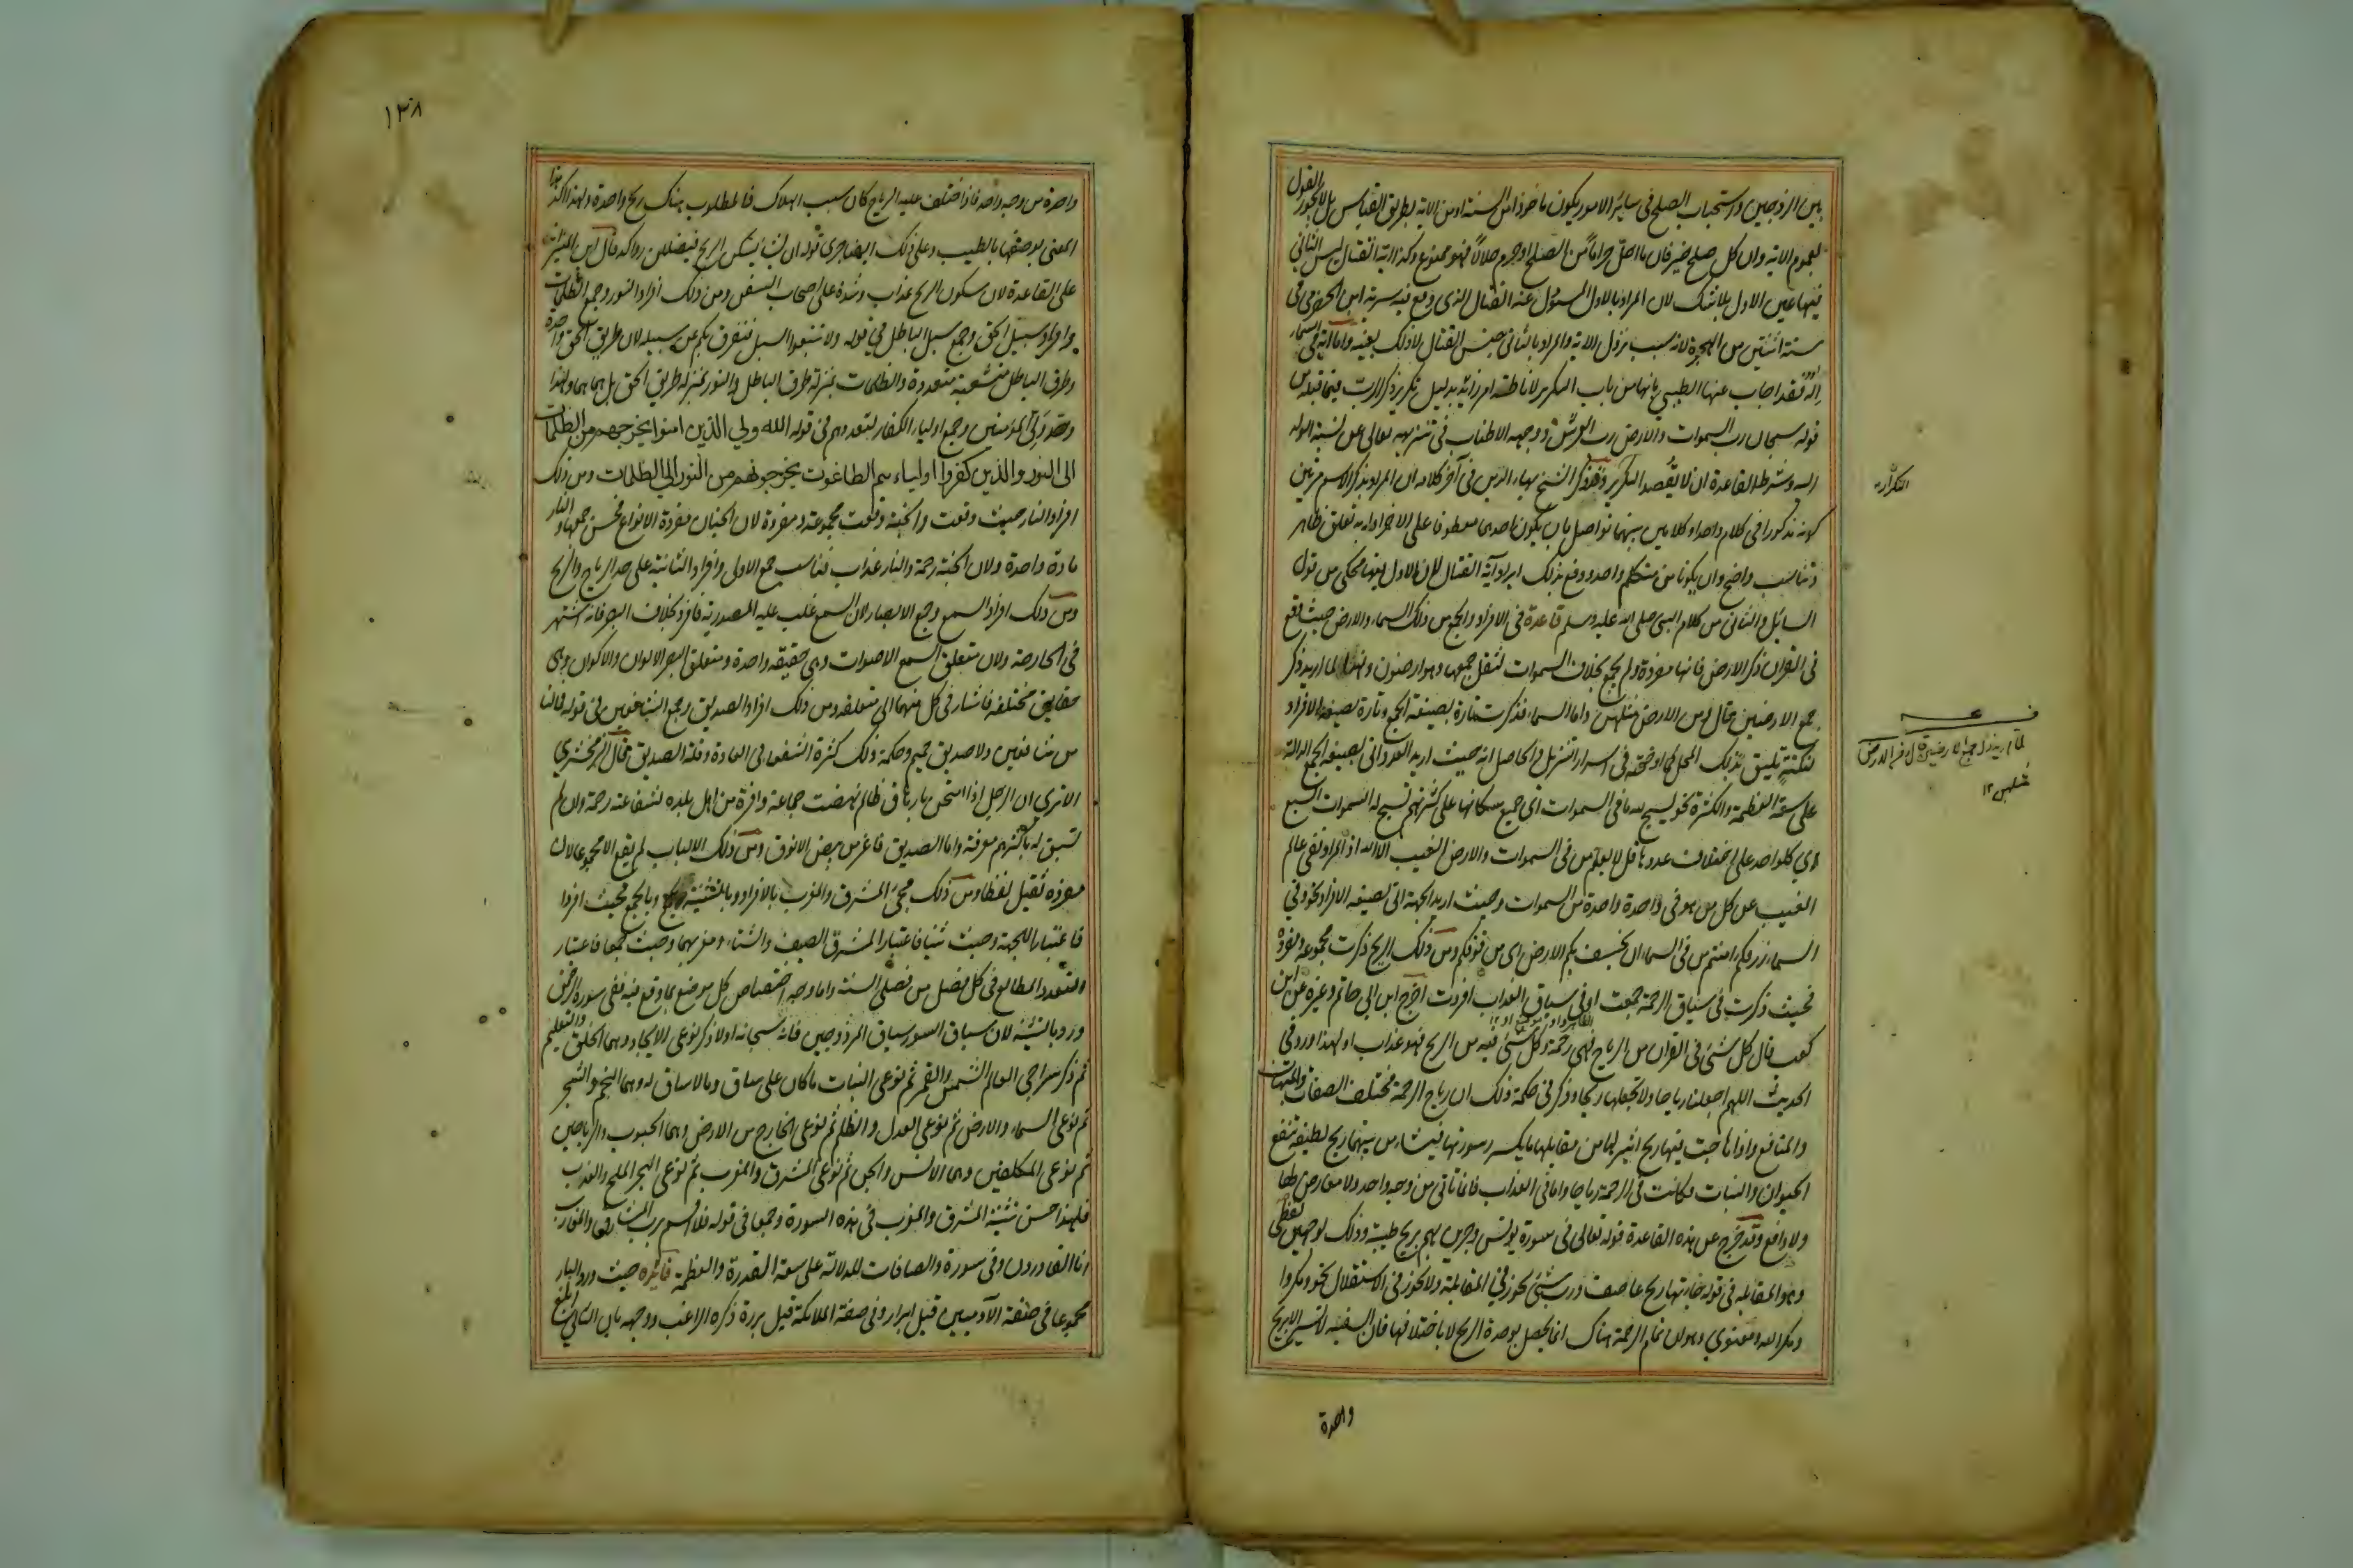 بين الزوجين واستحباب الصلح في سائر الامور يكون ماخوذا من السنة او من الاية بطريق القياس بل لا يجوز القول
بعموم الاية وان كل صلح خير فان ما احل حراما من الصلح او حرم حلالا فهو ممنوع وكذا اية القتال ليس الثاني
فيها عين الاول بلا شك لان المراد بالاول المسئول عنه القتال الذي وقع فيه سرية ابن الحضرمي في
سنة اثنتين من الهجرة لانه سبب نزول الاية والمراد بالثاني جنس القتال لا ذلك بعينه واما اية في السماء
اله فقد اجاب عنها الطيبي بانها من باب التكرير لاناطة امر زايد بدليل تكرير ذكر الرب فيما قبله من
قوله سبحان رب السموات والارض رب العرش ووجهه الاطناب في تنزيهه تعالى عن نسبة الولد
اليه وشرط القاعدة ان لا يقصد التكرير وقد ذكر الشيخ بهاء الدين في آخر كلامه ان المراد بذكر الاسم مرتين
كونه مذكورا في كلام واحد او كلامين بينهما تواصل بان يكون احدهما معطوفا على الاخر او له به تعلق ظاهر
وتناسب واضح وان يكونا من متكلم واحد ودفع بذلك ايراد آية القتال لان الاول فيها محكي من قول
السائل والثاني من كلام النبي صلى الله عليه وسلم قاعدة في الافراد والجمع من ذلك السماء والارض حيث وقع
في القرآن ذكر الارض فانها مفردة ولم يجمع بخلاف السموات لثقل جمعها وهو ارضون ولهذا لما اريد ذكر
جميع الارضين قال ومن الارض مثلهن واما السماء فذكرت تارة بصيغة الجمع وتارة بصيغة الافراد
لنكتة تليق بذلك المحل كما اوضحته في اسرار التنزيل والحاصل انه حيث اريد العدد اتى بصيغة الجمع الدالة
على سعة العظمة والكثرة نحو يسبح لله ما في السموات اي جميع سكانها على كثرتهم تسبح له السموات السبع
اي كل واحد على اختلاف عددها قل لا يعلم من في السموات والارض الغيب الا الله اذ المراد نفي علم
الغيب عن كل من هو في واحدة واحدة من السموات وحيث اريد الجهة اتى بصيغة الافراد نحو وفي
السماء رزقكم امنتم من في السماء ان يخسف بكم الارض اي من فوقكم ومن ذلك الريح ذكرت مجموعة ومفردة
فحيث ذكرت في سياق الرحمة جمعت او في سياق العذاب افردت اخرج ابن ابي حاتم وغيره عن ابن
كعب قال كل شئ في القرآن من الرياح فهي رحمة وكل شئ فيه من الريح فهو عذاب او لهذا ورد في
الحديث اللهم اجعلها رياحا ولا تجعلها ريحا وذكر في حكمة ذلك ان رياح الرحمة مختلفة الصفات والهبات
والمنافع واذا هاجت منها ريح اثير لها من مقابلها ما يكسر سورتها فينشاء من بينهما ريح لطيفة تنفع
الحيوان والنبات فكانت في الرحمة رياحا واما في العذاب فانها تاتي من وجه واحد ولا معارض لها
ولا دافع وقد خرج عن هذه القاعدة قوله تعالى في سورة يونس وجرين بهم بريح طيبة وذلك لوجهين لفظي
وهو المقابلة في قوله جاءتها ريح عاصف ورب شئ يجوز في المقابلة ولا يجوز في الاستقلال نحو ومكروا
ومكر الله ومعنوي وهو ان تمام الرحمة هناك انما يحصل بوحدة الريح لا باختلافها فان السفينة لا تسير الا بريح
واحدة
التكرار
لما اريد ذكر جميع الارضين قال ومن الارض
مثلهن ١٢
١٣٨
واحدة من وجه واحد فاذا اختلف عليه الرياح كان سبب الهلاك فالمطلوب هناك ريح واحدة ولهذا اكد هذا
المعنى بوصفها بالطيب وعلى ذلك ايضا جرى قوله ان يشاء يسكن الريح فيظللن رواكد قال ابن المنير انه
على القاعدة لان سكون الريح عذاب وشدة على اصحاب السفن ومن ذلك افراد النور وجمع الظلمات
وافراد سبيل الحق وجمع سبل الباطل في قوله ولا تتبعوا السبل فتفرق بكم عن سبيله لان طريق الحق واحدة
وطرق الباطل متشعبة متعددة والظلمات بمنزلة طرق الباطل والنور بمنزلة طريق الحق بل هما هما ولهذا
وحد ولي المؤمنين وجمع اولياء الكفار لتعددهم في قوله الله ولي الذين امنوا يخرجهم من الظلمات
الى النور والذين كفروا اولياءهم الطاغوت يخرجونهم من النور الى الظلمات ومن ذلك
افراد النار حيث وقعت والجنة وقعت مجموعة ومفردة لان الجنان مفردة الانواع فحسن جمعها والنار
مادة واحدة ولان الجنة رحمة والنار عذاب فناسب جمع الاولى وافراد الثانية على حد الرياح والريح
ومن ذلك افراد السمع وجمع الابصار لان السمع غلب عليه المصدرية فافرد بخلاف البصر فانه اشتهر
في الجارحة ولان متعلق السمع الاصوات وهي حقيقة واحدة ومتعلق البصر الالوان والاكوان وهي
حقايق مختلفة فاشار في كل منهما الى متعلقه ومن ذلك افراد الصديق وجمع الشافعين في قوله فما لنا
من شافعين ولا صديق حميم وحكمة ذلك كثرة الشفعاء في العادة وقلة الصديق قال الزمخشري
الا ترى ان الرجل اذا امتحن بارهاق ظالم نهضت جماعة وافرة من اهل بلده لشفاعته رحمة وان لم
تسبق له باكثرهم معرفة واما الصديق فاعز من بيض الانوق ومن ذلك الالباب لم يقع الا مجموعا لان
مفرده ثقيل لفظا ومن ذلك مجئ المشرق والمغرب بالافراد وبالتثنية وبالجمع فحيث افردا
فاعتبارا للجهة وحيث ثنيا فاعتبارا لمشرق الصيف والشتاء ومغربهما وحيث جمعا فاعتبار
لتعدد المطالع في كل فصل من فصلي السنة واما وجه اختصاص كل موضع بما وقع فيه ففي سورة الرحمن
ورد بالتثنية لان سياق السورة سياق المزدوجين فانه سبحانه اولا ذكر نوعي الايجاد وهما الخلق والتعليم
ثم ذكر سراجي العالم الشمس والقمر ثم نوعي النبات ما كان على ساق وما لا ساق له وهما النجم والشجر
ثم نوعي السماء والارض ثم نوعي العدل والظلم ثم نوعي الخارج من الارض وهما الحبوب والرياحين
ثم نوعي المكلفين وهما الانس والجن ثم نوعي المشرق والمغرب ثم نوعي البحر الملح والعذب
فلهذا حسن تثنية المشرق والمغرب في هذه السورة وجمعا في قوله فلا اقسم برب المشارق والمغارب
انا لقادرون وفي سورة والصافات للدلالة على سعة القدرة والعظمة فائدة حيث ورد البار
مجموعا في صفة الآدميين قيل ابرار وفي صفة الملائكة قيل بررة ذكره الراغب ووجهه بان الثاني ابلغ